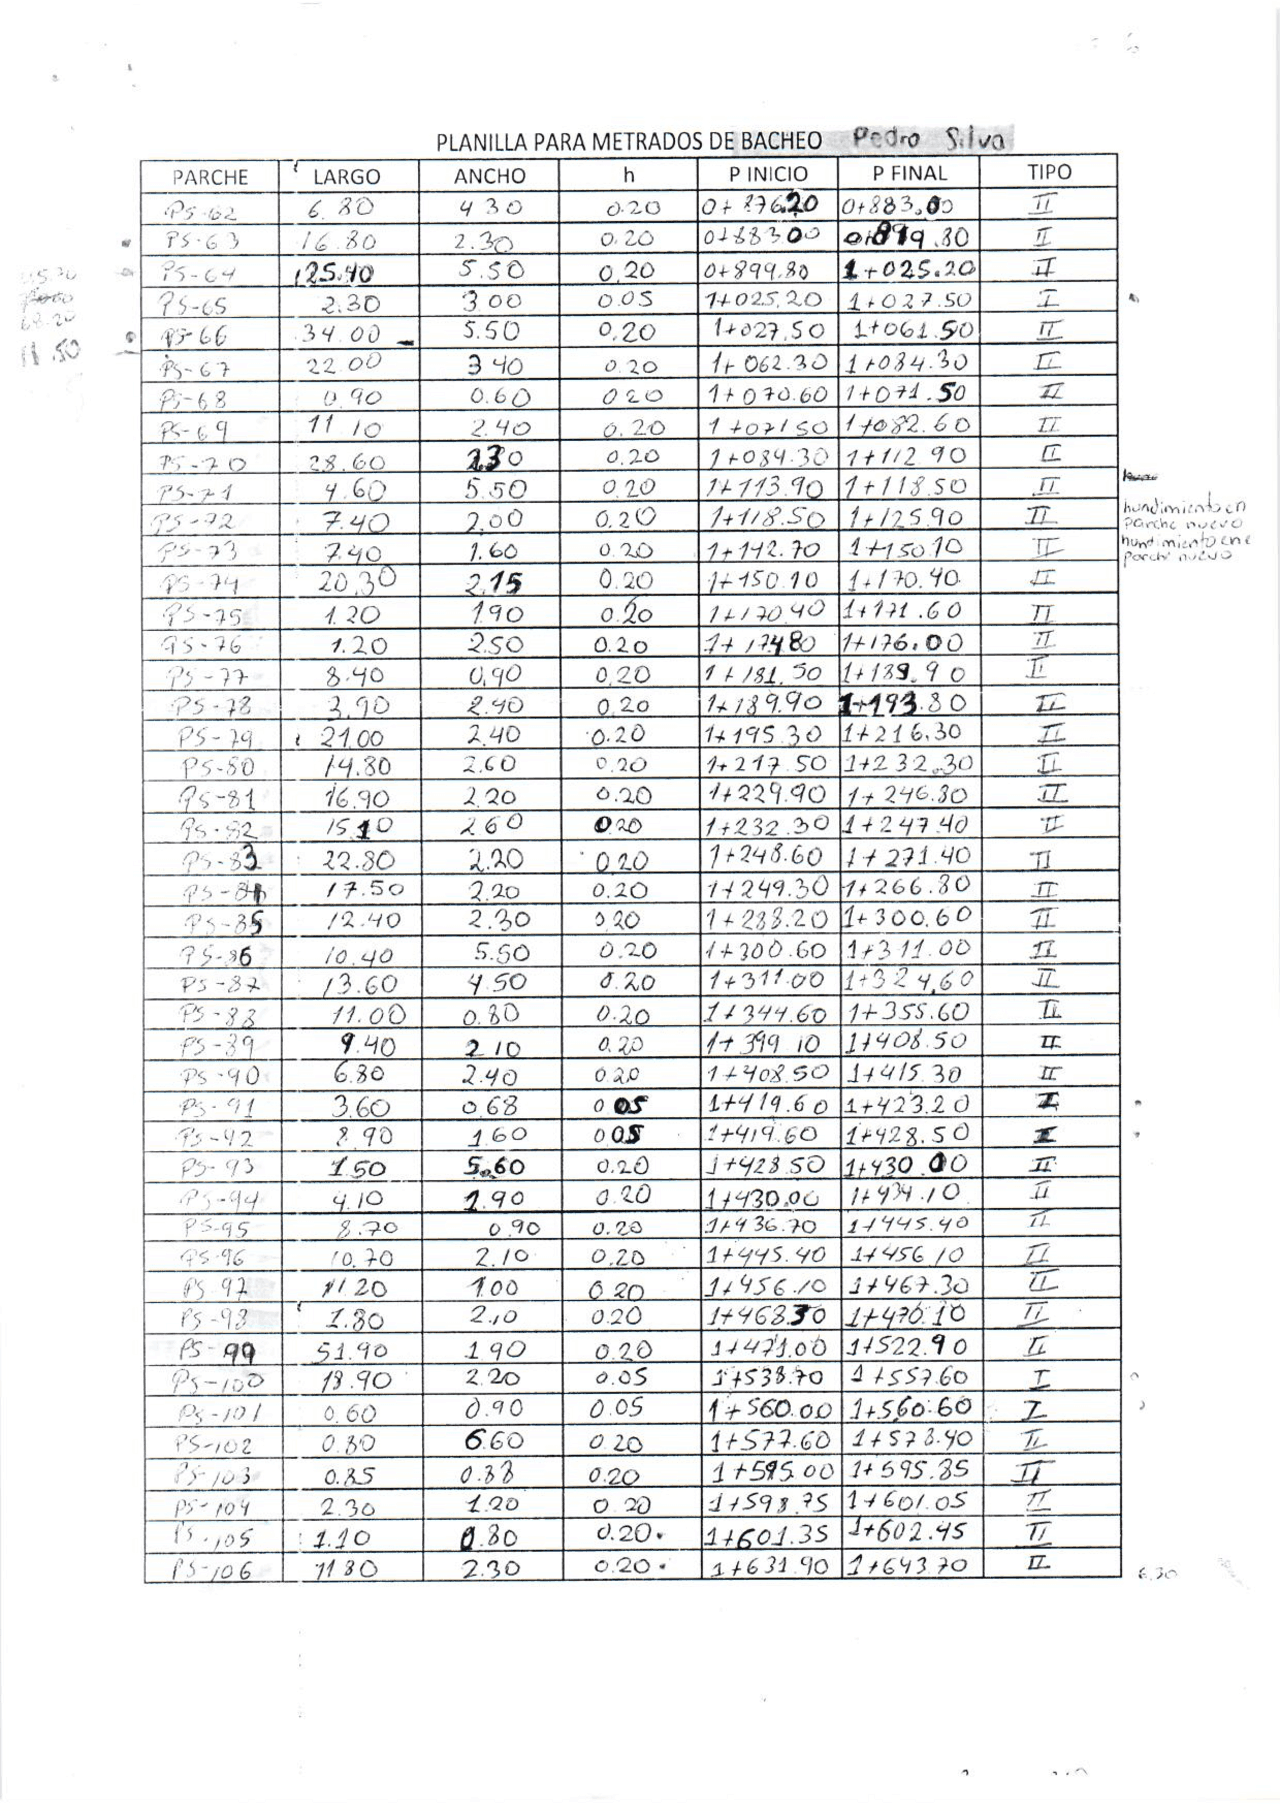 PLANILLA PARA METRADOS DE BACHEO Pedro Silva
PARCHE LARGO ANCHO h P INICIO P FINAL TIPO
PS-62 6.80 4 30 0.20 0+876.20 0+883.00 II
PS-63 16.80 2.30 0.20 0+883.00 0+899.80 II
PS-64 125.40 5.50 0.20 0+899.80 1+025.20 II
PS-65 2.30 3 00 0.05 1+025.20 1+027.50 I
PS-66 34.00 5.50 0.20 1+027.50 1+061.50 II
11.50
PS-67 22.00 3 40 0.20 1+062.30 1+084.30 II
PS-68 0.90 0.60 0 20 1+070.60 1+071.50 II
PS-69 11 10 2.40 0.20 1+071 50 1+082.60 II
PS-70 28.60 2.30 0.20 1+084.30 1+112 90 II
PS-71 4.60 5.50 0.20 1+113.90 1+118.50 II
PS-72 7.40 2.00 0.20 1+118.50 1+125.90 II hundimiento en parche nuevo
PS-73 7.40 1.60 0.20 1+142.70 1+150.10 II hundimiento en parche nuevo
PS-74 20.30 2.15 0.20 1+150.10 1+170.40 II
PS-75 1.20 1.90 0.20 1+170.40 1+171.60 II
PS-76 1.20 2.50 0.20 1+174.80 1+176.00 II
PS-77 8.40 0.90 0.20 1+181.50 1+189.90 II
PS-78 3.90 2.40 0.20 1+189.90 1+193.80 II
PS-79 21.00 2.40 0.20 1+195.30 1+216.30 II
PS-80 14.80 2.60 0.20 1+217.50 1+232.30 II
PS-81 16.90 2.20 0.20 1+229.90 1+246.80 II
PS-82 15.10 2 60 0.20 1+232.30 1+247.40 II
PS-83 22.80 2.20 0.20 1+248.60 1+271.40 II
PS-84 17.50 2.20 0.20 1+249.30 1+266.80 II
PS-85 12.40 2.30 0.20 1+288.20 1+300.60 II
PS-86 10.40 5.50 0.20 1+300.60 1+311.00 II
PS-87 13.60 4.50 0.20 1+311.00 1+324.60 II
PS-88 11.00 0.80 0.20 1+344.60 1+355.60 II
PS-89 9.40 2 10 0.20 1+399 10 1+408.50 II
PS-90 6.80 2.40 0.20 1+408.50 1+415.30 II
PS-91 3.60 0.68 0 05 1+419.60 1+423.20 I
PS-92 8.90 1.60 0.05 1+419.60 1+428.50 I
PS-93 1.50 5.60 0.20 1+428.50 1+430.00 II
PS-94 4.10 1.90 0.20 1+430.00 1+434.10 II
PS-95 8.70 0.90 0.20 1+436.70 1+445.40 II
PS-96 10.70 2.10 0.20 1+445.40 1+456.10 II
PS-97 11.20 1.00 0.20 1+456.10 1+467.30 II
PS-98 1.80 2.10 0.20 1+468.30 1+470.10 II
PS-99 51.90 1 90 0.20 1+471.00 1+522.90 II
PS-100 18.90 2.20 0.05 1+538.70 1+557.60 I
PS-101 0.60 0.90 0.05 1+560.00 1+560.60 I
PS-102 0.80 6.60 0.20 1+577.60 1+578.40 II
PS-103 0.85 0.88 0.20 1+595.00 1+595.85 II
PS-104 2.30 1.20 0.20 1+598.75 1+601.05 II
PS-105 1.10 0.80 0.20. 1+601.35 1+602.45 II
PS-106 11 80 2.30 0.20. 1+631.90 1+643.70 II
6.30